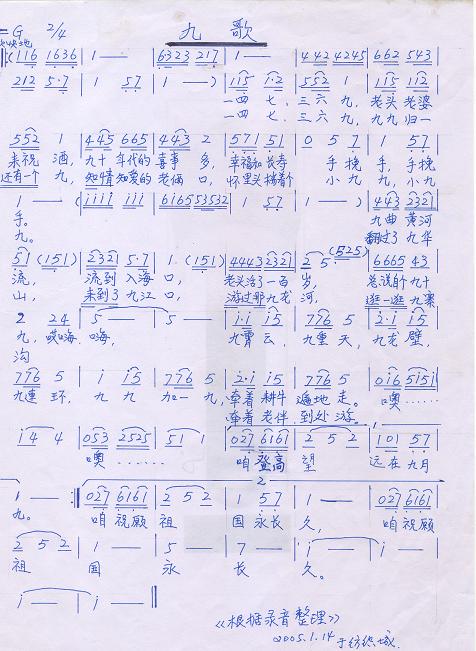 九歌
=G 2/4
(116 1636 | 1 — | 6323 217 | 1 — | 442 4245 | 662 543
212 5·7 | 1 57 | 1 —) | 115 12 | 552 1 | 115 112
一四 七，三六 九，老头 老婆
一四 七，三六 九，九九 归一
552 1 | 445 665 | 443 2 | 571 51 | 0 5 7 | 1 57
来祝 酒，九十 年代的 喜事 多，幸福和 长寿 手 挽 手，手挽
还有一个 九，知情 知爱的 老俩 口，怀里头 揣着个 小 九 九，小九
1 — | iiii iii | 6165 53532 | 1 57 | 1 — | 443 2321
手。 九曲 黄河
九。 翻过了 九华
51 (151) | 2321 5·7 | 1 (151) | 4443 2321 | 2 5 (525) | 6665 43
流， 流到 入海 口， 老头活了 一百 岁， 总说自 九十
山， 来到了 九江 口， 游过那 九龙 河， 逛一逛 九寨
2 24 | 5 — | 5 — | i·i i5 | 776 5 | 2·i i5
九，哎嗨 嗨， 九霄 云，九重 天，九龙 壁，
沟
776 5 | i i5 | 776 5 | 2·i i5 | 776 5 | 0i6 5i5i
九连 环，九 九 加一 九，牵着 耕牛 遍地 走。 噢……
牵着 老伴 到处 游。
i 4 4 | 053 2525 | 51 1 | 027 6161 | 2 5 2 | 101 57
噢…… 咱 登高 望 远在 九月
2
1 — :| 027 6161 | 2 5 2 | 1 57 | 1 — | 027 6161
九。 咱 祝愿 祖 国 永长 久， 咱 祝愿
2 5 2 | 1 — | 5 — | 7 — | i — | i —
祖 国 永 长 久。
i — | i — ||
《根据录音整理》
2005.1.14于纺织城.